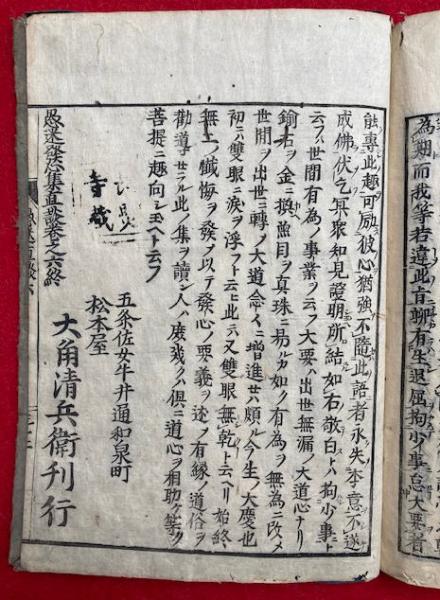 為期而我等若違此旨聊有生退屈拘少事怠大要者
能專此趣可勵彼心猶強不隨此語者永失本意不遂
成佛伏乞冥衆知見證明所結如右敬白ト拘少事ト
云フハ世間有為ノ事業ヲ云フ大要ハ出世無漏ノ大道心ナリ
鍮石ヲ金ニ換魚目ヲ真珠ニ易ルカ如ク有為ヲ無為ニ改メ
世間ヲ出世ニ轉ノ大道念イニ増進セハ頗ル今生ノ大慶也
初ニハ雙眼ニ浮フ淚ト云上此ニハ又雙眼無乾ト云ヘリ始終
無二ノ懺悔ヲ發ノ以テ發心ノ要義ヲ述ブ有縁ノ道俗ヲ
勸導セラル此ノ集ヲ讀ン人ハ庶幾クハ倶ニ道心ヲ相助ケ等ク
菩提ニ趣向シ玉ヘト云フ
寺藏
五条佐女牛井通和泉町
松本屋
大角清兵衛刊行
愚迷發心集直談卷之六終